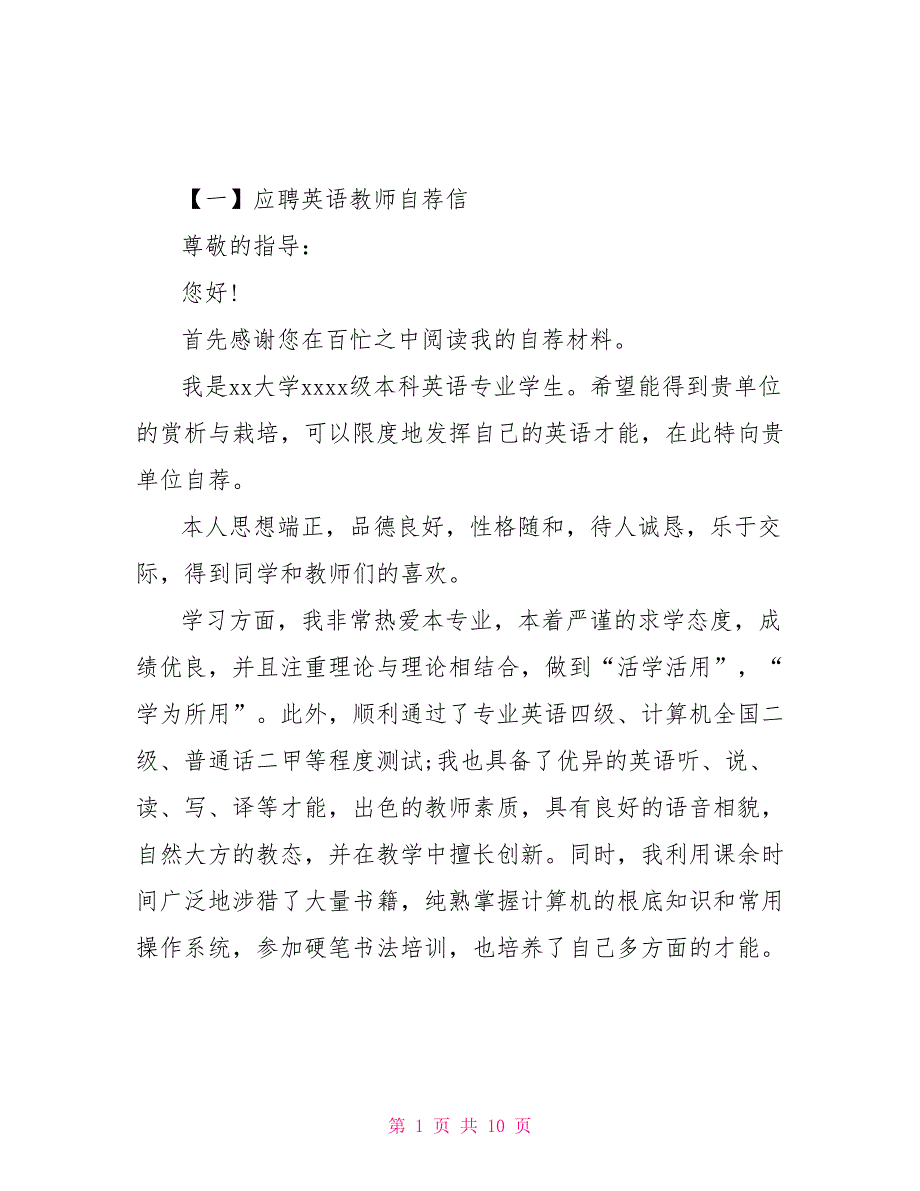 【一】应聘英语教师自荐信
尊敬的指导：
您好!
首先感谢您在百忙之中阅读我的自荐材料。
我是xx大学xxxx级本科英语专业学生。希望能得到贵单位
的赏析与栽培，可以限度地发挥自己的英语才能，在此特向贵
单位自荐。
本人思想端正，品德良好，性格随和，待人诚恳，乐于交
际，得到同学和教师们的喜欢。
学习方面，我非常热爱本专业，本着严谨的求学态度，成
绩优良，并且注重理论与理论相结合，做到“活学活用”，“
学为所用”。此外，顺利通过了专业英语四级、计算机全国二
级、普通话二甲等程度测试;我也具备了优异的英语听、说、
读、写、译等才能，出色的教师素质，具有良好的语音相貌，
自然大方的教态，并在教学中擅长创新。同时，我利用课余时
间广泛地涉猎了大量书籍，纯熟掌握计算机的根底知识和常用
操作系统，参加硬笔书法培训，也培养了自己多方面的才能。
第 1 页 共 10 页